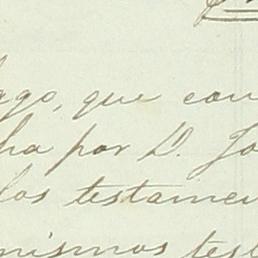 que con
por D. Jo
los testamen
mismos test